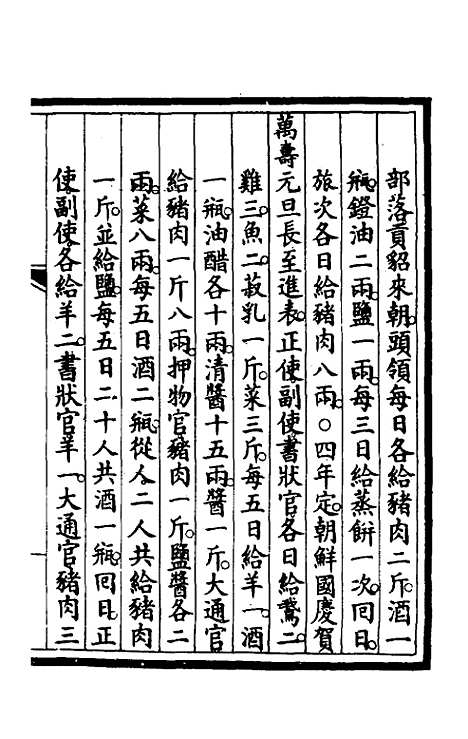 部落貢貂來朝。頭領每日各給豬肉二斤。酒一
瓶。鐙油二兩。鹽一兩。每三日給蒸餅一次。囘日。
旅次各日給豬肉八兩。○四年定。朝鮮國慶賀
萬壽元旦長至進表。正使副使書狀官各日給鵞二。
雞三。魚二。菽乳一斤。菜三斤。每五日給羊一。酒
一瓶。油醋各十兩。清醬十五兩。醬一斤。大通官
給豬肉一斤八兩。押物官豬肉一斤。鹽醬各二
兩。菜八兩。每五日酒二瓶。從人二人共給豬肉
一斤。並給鹽。每五日二十人共酒一瓶。囘日。正
使副使各給羊二。書狀官羊一。大通官豬肉三